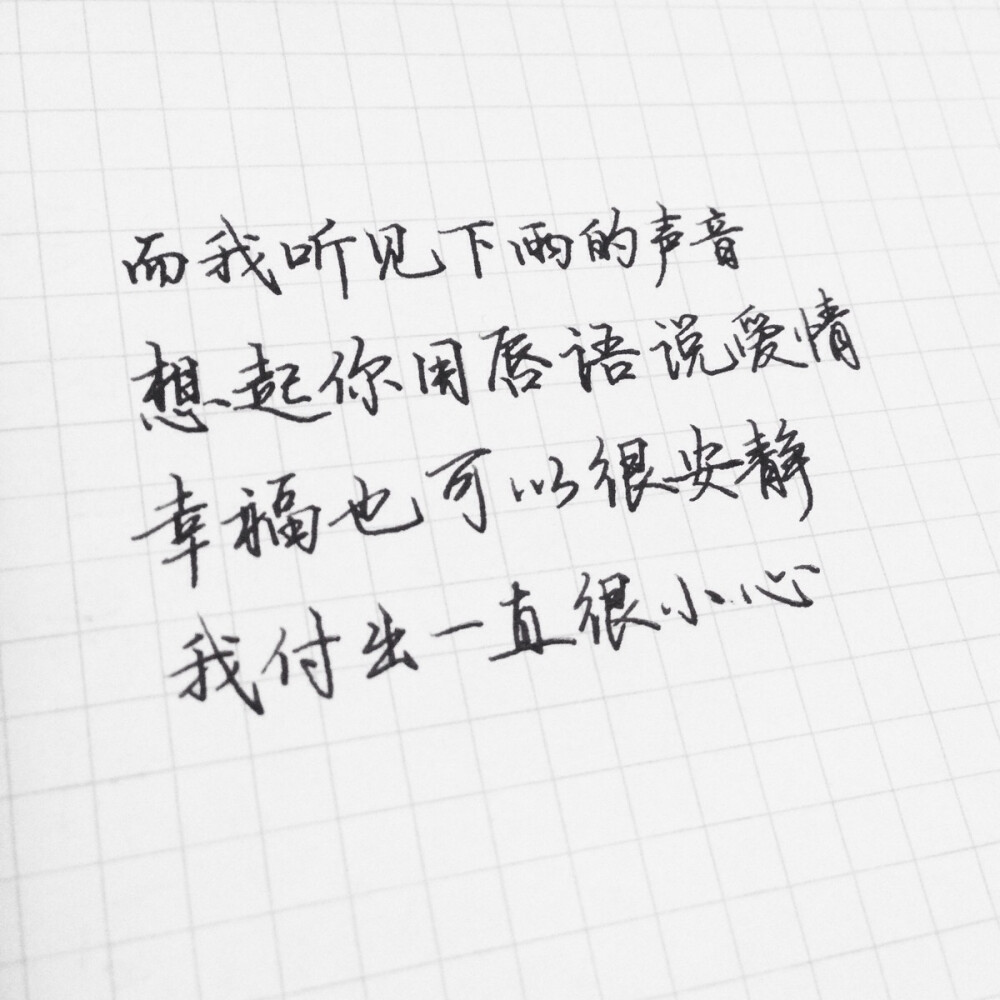 而我听见下雨的声音
想起你用唇语说爱情
幸福也可以很安静
我付出一直很小心